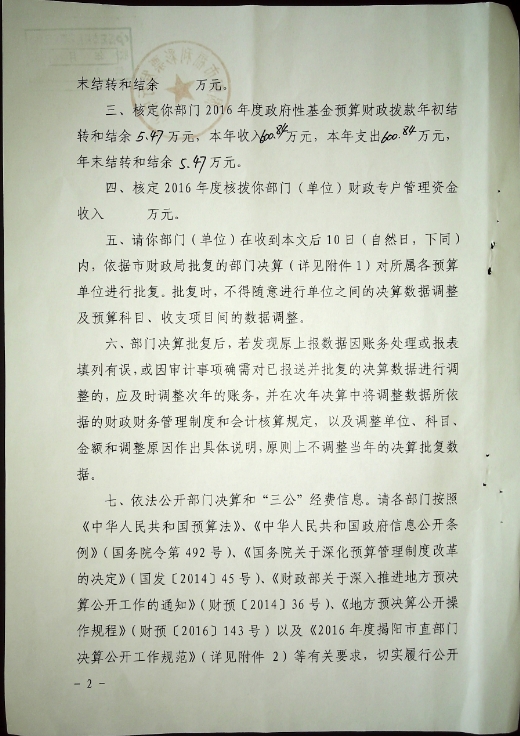 末结转和结余　　万元。
三、核定你部门 2016 年度政府性基金预算财政拨款年初结
转和结余 5.47 万元，本年收入 600.84 万元，本年支出 600.84 万元，
年末结转和结余 5.47 万元。
四、核定 2016 年度核拨你部门（单位）财政专户管理资金
收入　　万元。
五、请你部门（单位）在收到本文后 10 日（自然日，下同）
内，依据市财政局批复的部门决算（详见附件 1）对所属各预算
单位进行批复。批复时，不得随意进行单位之间的决算数据调整
及预算科目、收支项目间的数据调整。
六、部门决算批复后，若发现原上报数据因账务处理或报表
填列有误，或因审计事项确需对已报送并批复的决算数据进行调
整的，应及时调整次年的账务，并在次年决算中将调整数据所依
据的财政财务管理制度和会计核算规定，以及调整单位、科目、
金额和调整原因作出具体说明，原则上不调整当年的决算批复数
据。
七、依法公开部门决算和“三公”经费信息。请各部门按照
《中华人民共和国预算法》、《中华人民共和国政府信息公开条
例》（国务院令第 492 号）、《国务院关于深化预算管理制度改革
的决定》（国发〔2014〕45 号）、《财政部关于深入推进地方预决
算公开工作的通知》（财预〔2014〕36 号）、《地方预决算公开操
作规程》（财预〔2016〕143 号）以及《2016 年度揭阳市直部门
决算公开工作规范》（详见附件 2）等有关要求，切实履行公开
- 2 -